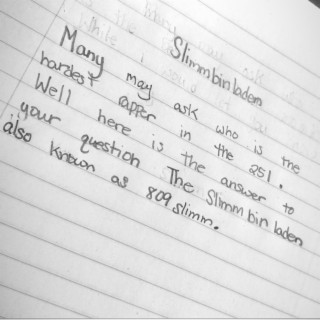 Slimmbinladen
Many may ask who is the
hardest rapper in the 251.
Well here is the answer to
your question The Slimmbinladen
also known as 809 slimm.